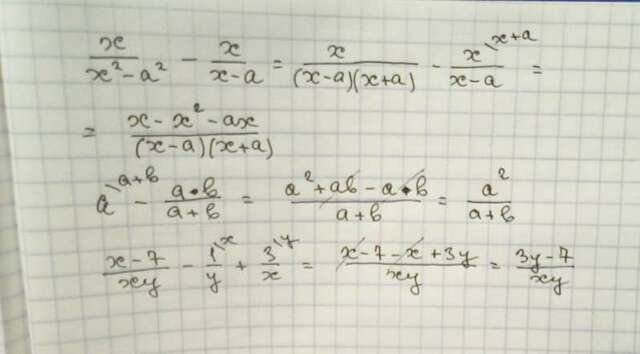 x/(x²-a²) - x/(x-a) = x/((x-a)(x+a)) - x\x+a/(x-a) =
= (x-x²-ax)/((x-a)(x+a))
a\a+b - (a·b)/(a+b) = (a²+ab-a·b)/(a+b) = a²/(a+b)
(x-7)/(xy) - 1\x/y + 3\y/x = (x-7-x+3y)/(xy) = (3y-7)/(xy)